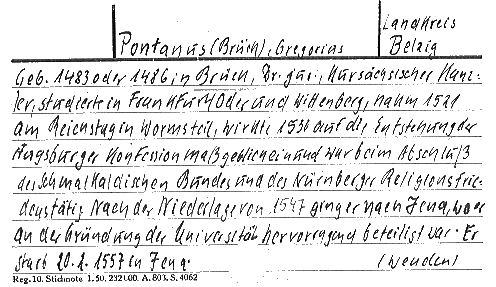 Landkreis
Pontanus (Brück), Gregorius Belzig
Geb. 1483 oder 1486 in Brück, Dr. jur., Kursächsischer Kanz-
ler, studierte in Frankfurt/Oder und Wittenberg, nahm 1521
am Reichstag in Worms teil, wirkte 1530 auf die Entstehung der
Augsburger Konfession maßgeblich ein und war beim Abschluß
des Schmalkaldischen Bundes und des Nürnberger Religionsfrie-
dens tätig. Nach der Niederlage von 1547 ging er nach Jena, wo er
an der Gründung der Universität hervorragend beteiligt war. Er
starb 20.2.1557 in Jena. (wenden)
Reg. 10. Stichnote 1. 50. 232 000. A. 803. S. 4062